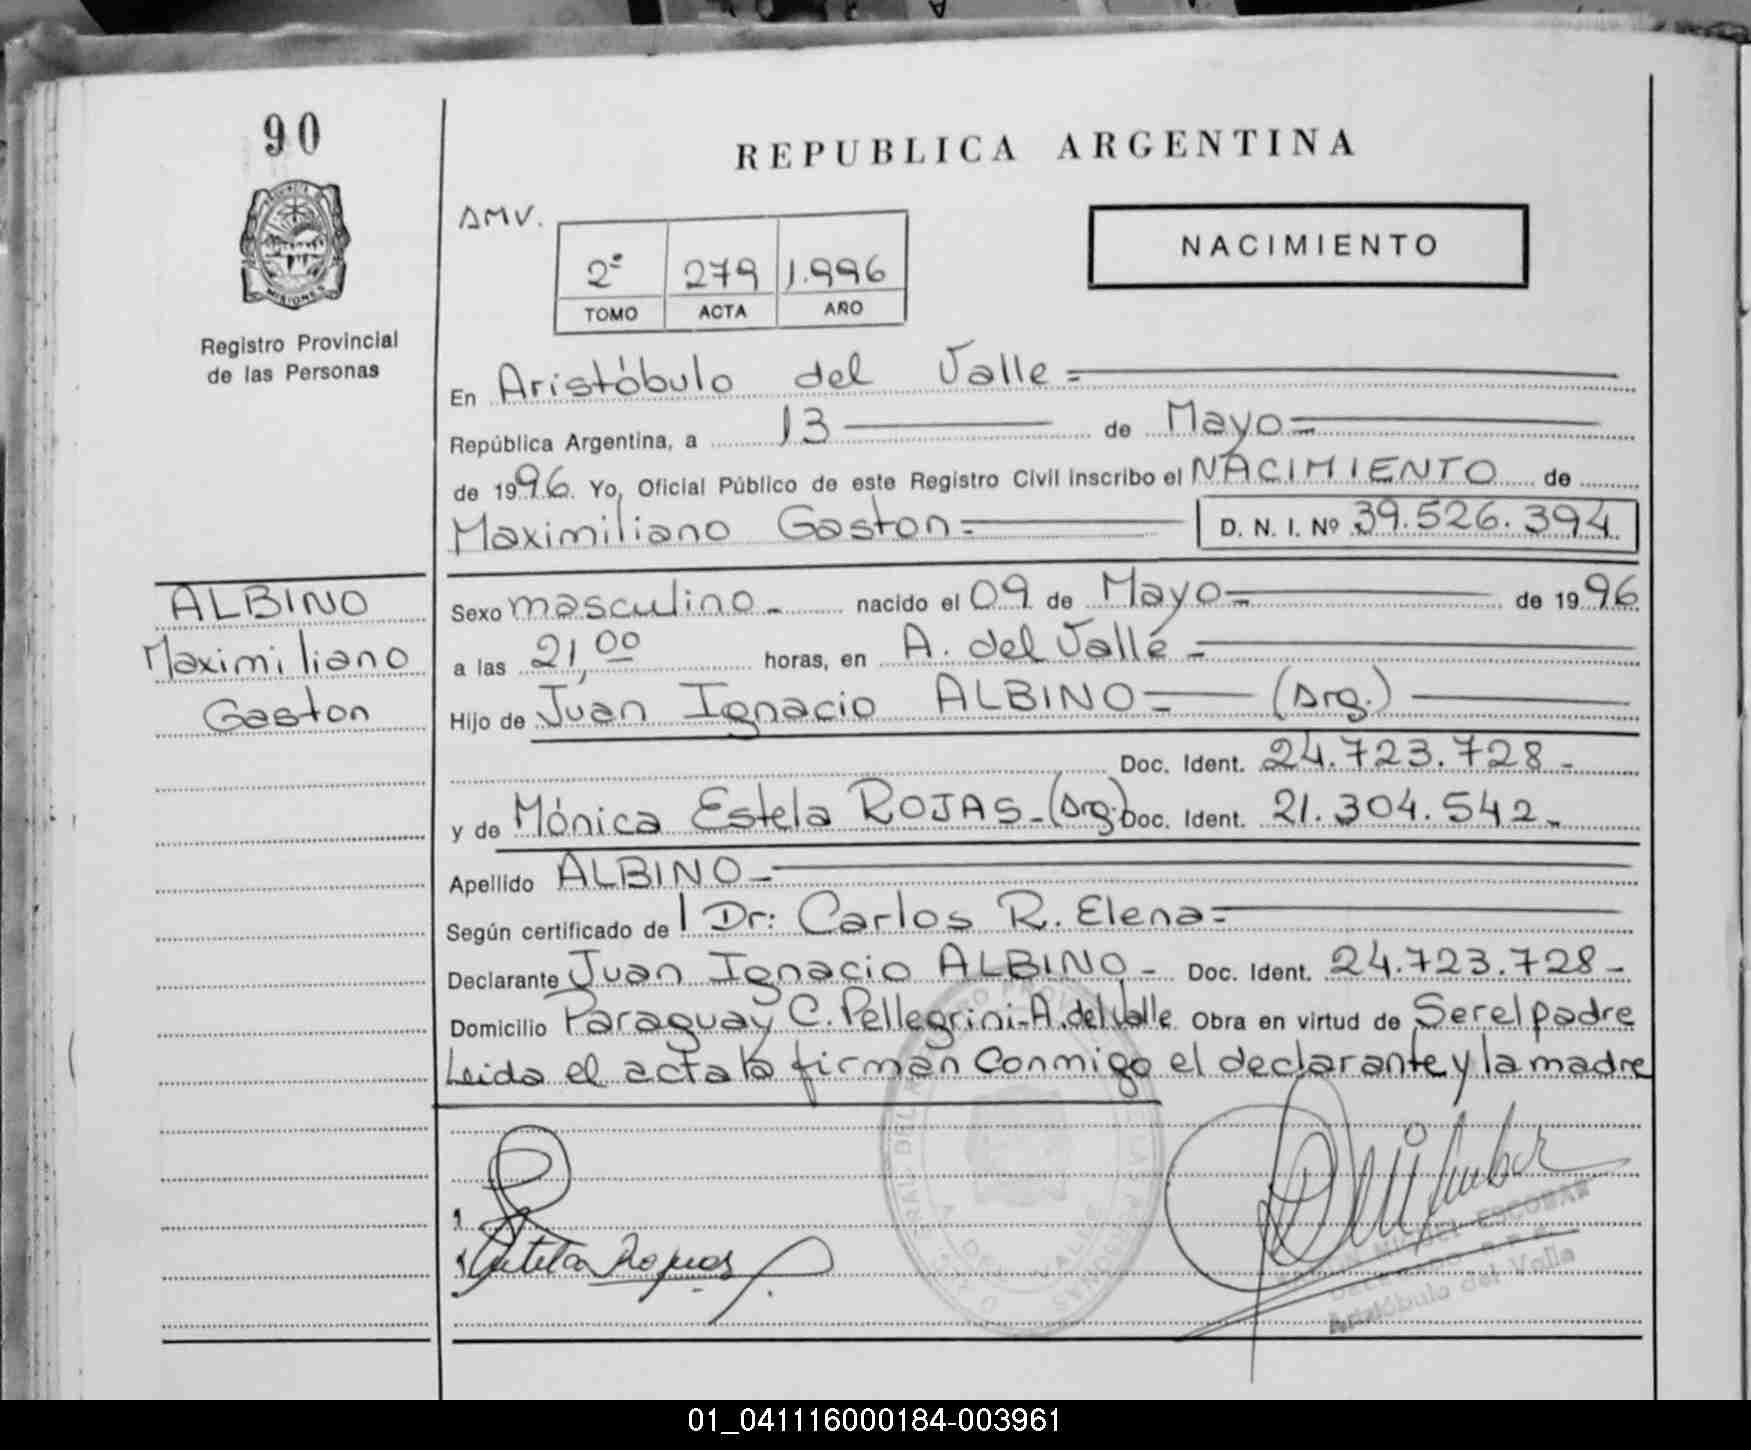 90
MISIONES
Registro Provincial
de las Personas
REPUBLICA ARGENTINA
AMV.
2º 279 1.996
TOMO ACTA AÑO
NACIMIENTO
En Aristóbulo del Valle=
República Argentina, a 13 de Mayo=
de 1996. Yo, Oficial Público de este Registro Civil inscribo el NACIMIENTO de
Maximiliano Gaston= D. N. I. Nº 39.526.394
ALBINO
Maximiliano
Gaston
Sexo masculino- nacido el 09 de Mayo= de 1996
a las 21,00 horas, en A. del Valle-
Hijo de Juan Ignacio ALBINO= (Arg.)
Doc. Ident. 24.723.728-
y de Mónica Estela ROJAS-(Arg.) Doc. Ident. 21.304.542-
Apellido ALBINO-
Según certificado de l Dr: Carlos R. Elena=
Declarante Juan Ignacio ALBINO- Doc. Ident. 24.723.728-
Domicilio Paraguay y C. Pellegrini-A. del Valle Obra en virtud de Ser el padre
Leida el acta la firman conmigo el declarante y la madre
MIGUEL ESCOBAR
Aristóbulo del Valle
01_041116000184-003961